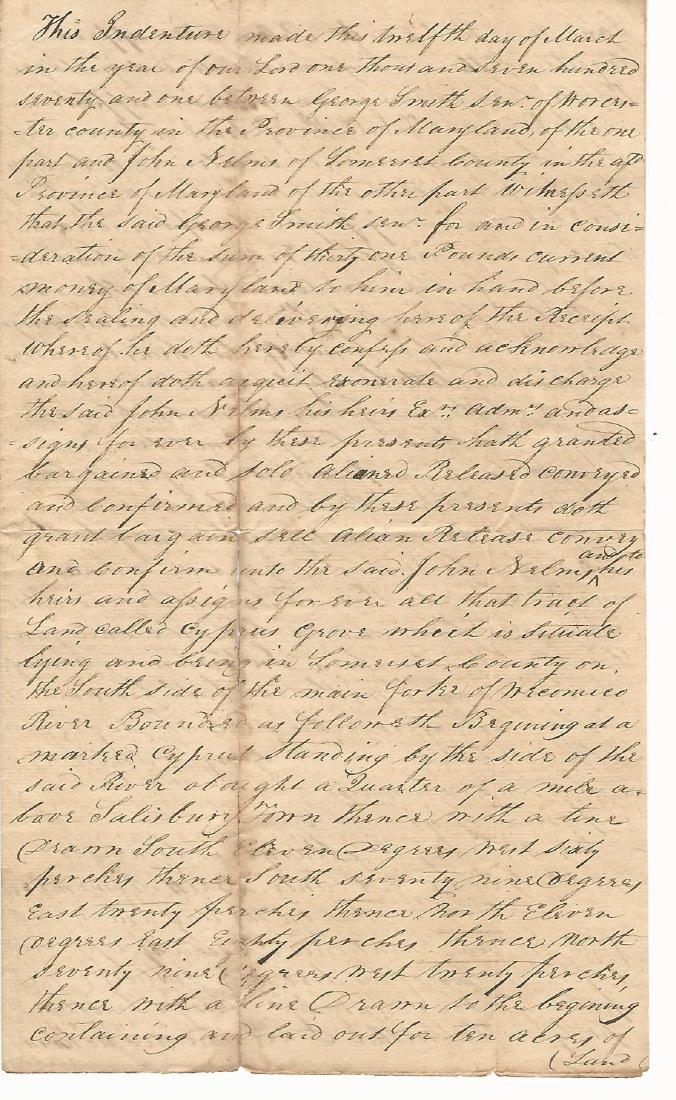 This Indenture made this twelfth day of March
in the year of our Lord one thousand seven hundred
seventy and one between George Smith senr. of Worces-
-ter county in the Province of Maryland, of the one
part and John Nelms of Somerset County in the afd
Province of Maryland of the other part Witnesseth
that the said George Smith senr. for and in consi=
=deration of the sum of thirty one Pounds current
money of Maryland to him in hand before
the sealing and delivering hereof the Receipt
whereof he doth hereby confess and acknowledge
and hereof doth acquit exonerate and discharge
the said John Nelms his heirs Exrs. Admrs. and as=
=signs for ever by these presents hath granded
bargained and sold Aliened Released conveyed
and confirmed and by these presents doth
grant bargain sell Alian Release convey
and confirm unto the said John Nelms ^ and to his
heirs and assigns for ever all that tract of
Land called Cyprus Grove which is situate
lying and being in Somerset County on
the South side of the main forke of Wecomico
River Bounded as followeth Begining at a
marked Cyprus standing by the side of the
said River abought a Quarter of a mile a=
bove Salisbury Town thence with a line
Drawn South Eleven Degrees West sixty
perches thence South seventy nine Degrees
East twenty perches thence North Eleven
Degrees East Eighty perches thence North
seventy nine Degrees West twenty perches,
thence with a line Drawn to the begining
containing and laid out for ten acres of
(Land